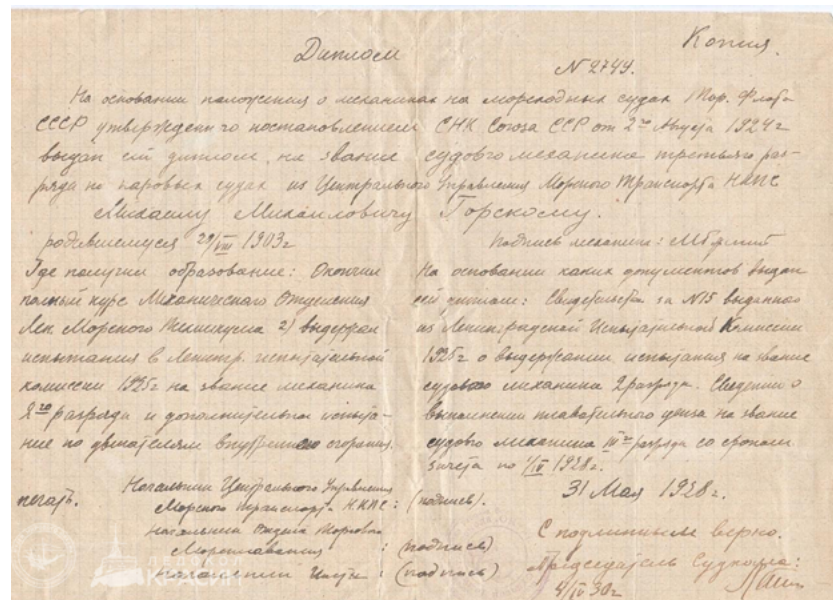 Копия.
Диплом
N 2744.
На основании положения о механиках на мореходных судах Тор. Флота
СССР утвержденного постановлением СНК Союза ССР от 2го Августа 1924г
выдан сей диплом на звание судового механика третьяго раз-
ряда на паровых судах из Центрального Управления Морского Транспорта НКПС
Михаилу Михаиловичу Горскому.
родившемуся 29/VIII 1903г
Подпись механика:
Где получил образование: Окончил
полный курс Механического Отделения
Лен. Морского Техникума 2) выдержал
испытания в Ленингр. испытательной
комиссии 1925г на звание механика
2го разряда и дополнительное испыта-
ние по двигателям внутреннего сгорания.
На основании каких документов выдан
сей диплом: Свидетельства за N15 выданного
из Ленинградской Испытательной Комиссии
1925г о выдержании испытания на звание
судового механика 2 разряда. Сведении о
выполнении плавательного ценза на звание
судового механика III го разряда со сроком
зачета по 1/IV 1928г.
31 Мая 1928г.
печать.
Начальник Центрального Управления
Морского Транспорта НКПС: (подпись).
Начальник Отдела Торгового
Мореплавания : (подпись)
Начальник Части : (подпись)
С подлинным верно.
Председатель Судкома:
4/IV 30г
ЛЕДОКОЛ
КРАСИН